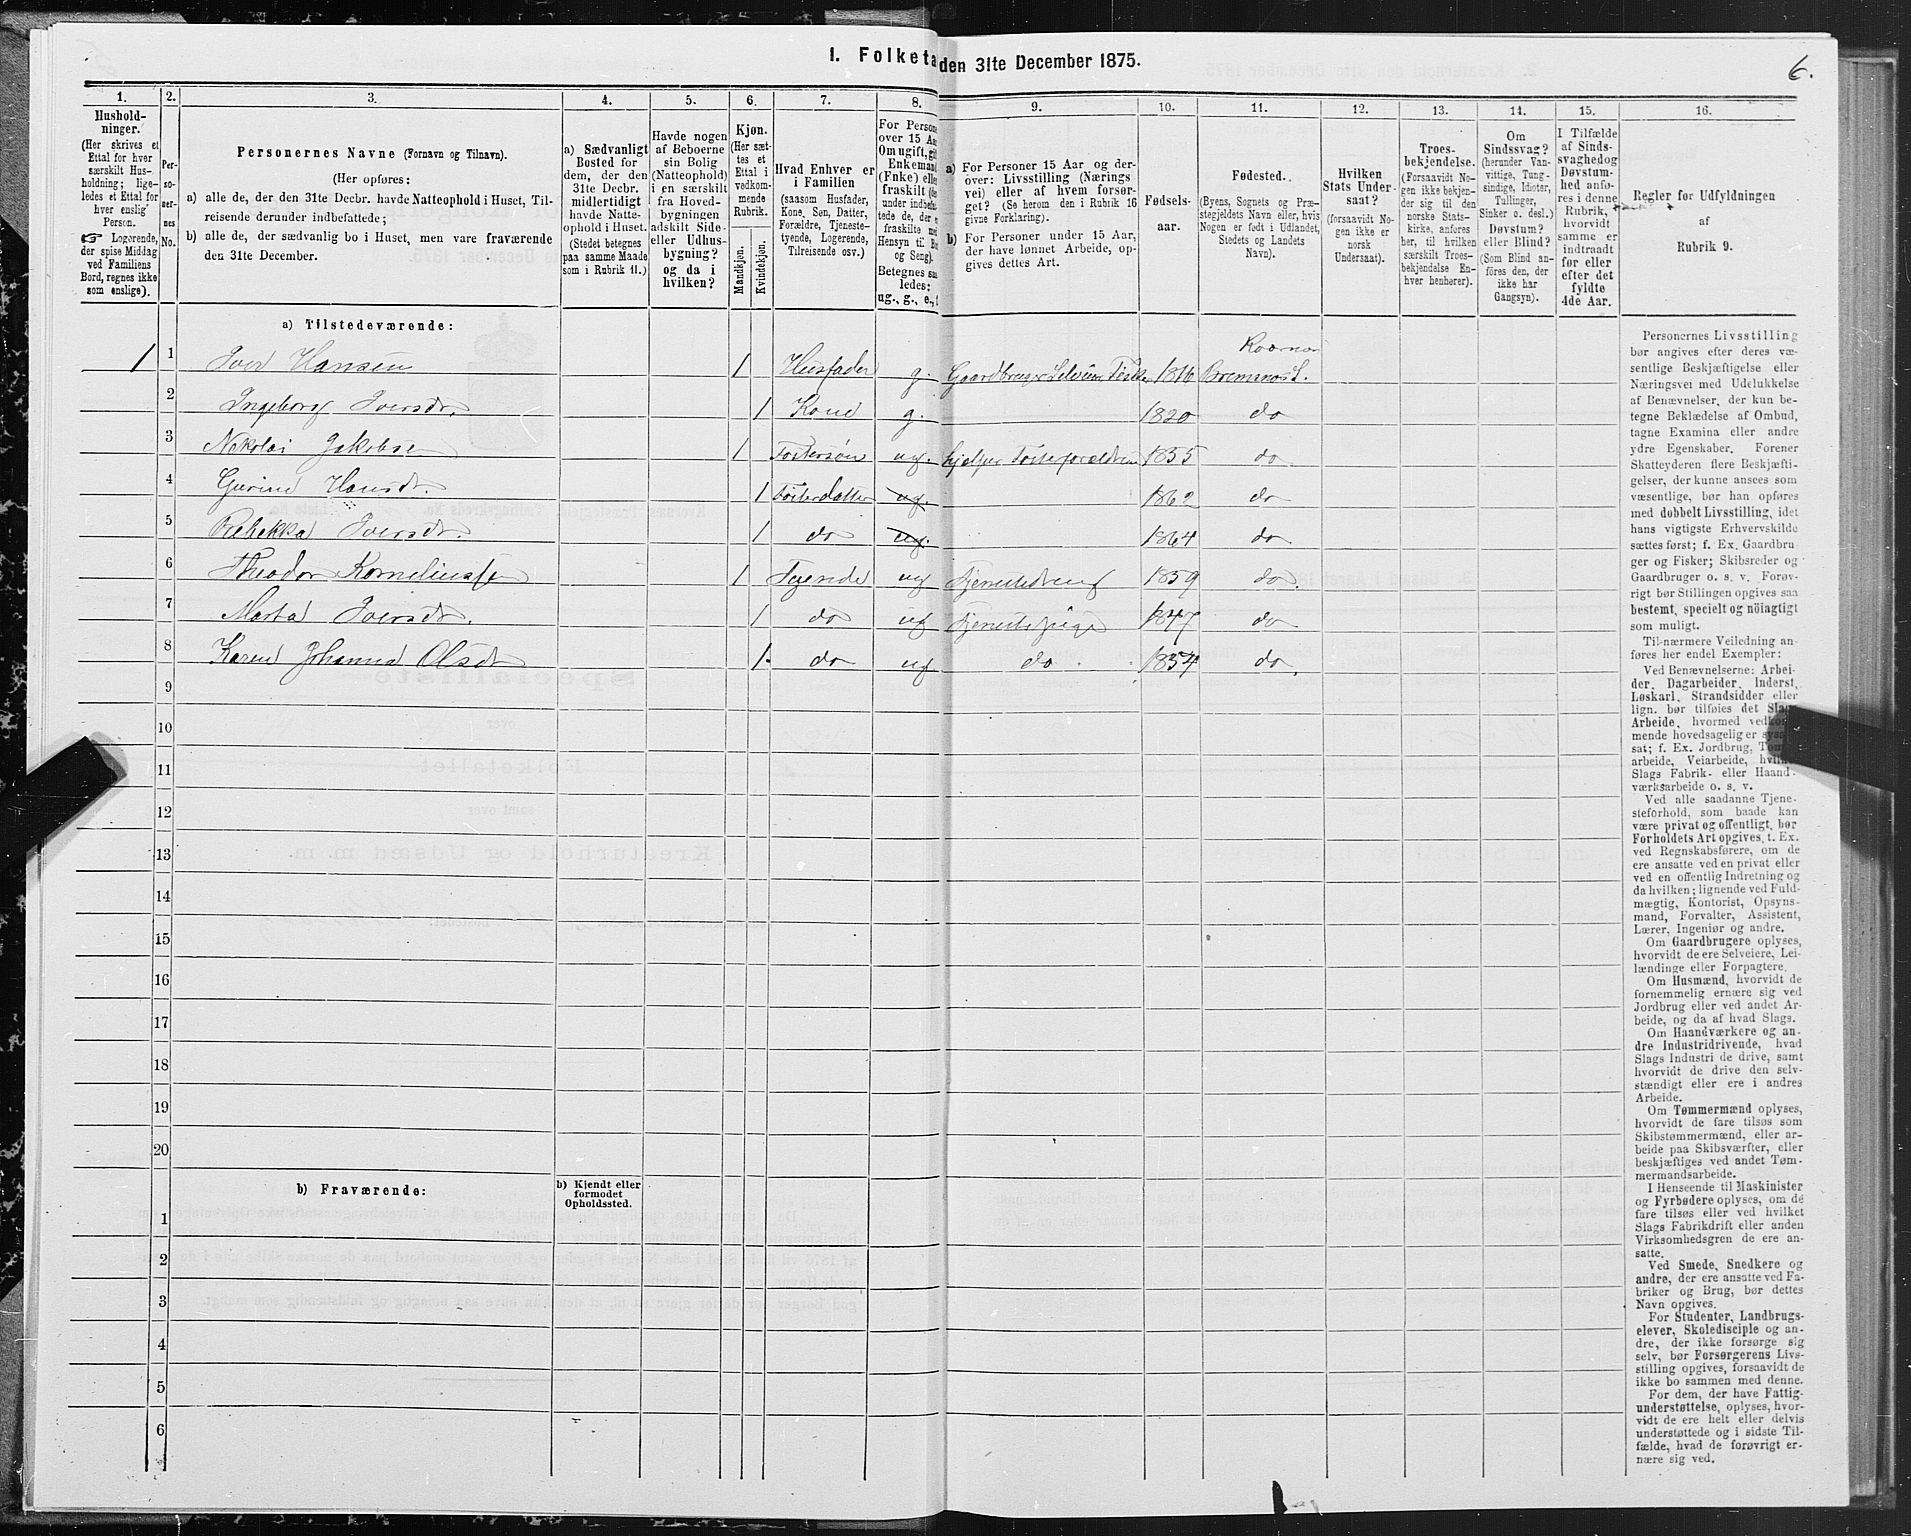 1. Folketa den 31te December 1875.
6.
1. 2. 3. 4. 5. 6. 7. 8. 9. 10. 11. 12. 13. 14. 15. 16.
Hushold-
ninger.
(Her skrives et
Ettal for hver
særskilt Hus-
holdning; lige-
ledes et Ettal for
hver enslig
Person.
☞ Logerende,
der spise Middag
ved Familiens
Bord, regnes ikke
som enslige).
Per-
so-
ner-
nes
No.
Personernes Navne (Fornavn og Tilnavn).
(Her opføres:
a) alle de, der den 31te Decbr. havde Natteophold i Huset, Til-
reisende derunder indbefattede;
b) alle de, der sædvanlig bo i Huset, men vare fraværende
den 31te December.
a) Sædvanligt
Bosted for
dem, der den
31te Decbr.
midlertidigt
havde Natte-
ophold i Huset.
(Stedet betegnes
paa samme Maade
som i Rubrik 11.)
Havde nogen
af Beboerne
sin Bolig
(Natteophold)
i en særskilt
fra Hoved-
bygningen
adskilt Side-
eller Udhus-
bygning?
og da i
hvilken?
Kjøn.
(Her sæt-
tes et
Ettal i
vedkom-
mende
Rubrik.
Mandkjøn.
Kvindekjøn.
Hvad Enhver er
i Familien
(saasom Husfader,
Kone, Søn, Datter,
Forældre, Tjeneste-
tyende, Logerende,
Tilreisende osv.)
For Persone
over 15 Aa
Om ugift, gif
Enkemand
(Enke) elle
fraskilt (de
under indbefat
tede de, der e
fraskilte me
Hensyn til Bo
og Seng).
Betegnes saa
ledes:
ug., g., e., f
a) For Personer 15 Aar og der-
over: Livsstilling (Nærings
vei) eller af hvem forsør-
get? (Se herom den i Rubrik 16
givne Forklaring).
b) For Personer under 15 Aar,
der have lønnet Arbeide, op-
gives dettes Art.
Fødsels-
aar.
Fødested.
(Byens, Sognets og Præ-
stegjeldets Navn eller, hvis
Nogen er født i Udlandet,
Stedets og Landets
Navn).
Hvilken
Stats Under-
saat?
(forsaavidt No-
gen ikke er
norsk
Undersaat).
Troes-
bekjendelse.
(Forsaavidt No-
gen ikke bekjen-
der sig til den
norske Stats-
kirke, anføres
her, til hvilken
særskilt Troes-
bekjendelse En-
hver henhører).
Om
Sindssvag?
(herunder Van-
vittige, Tung-
sindige, Idioter,
Tullinger,
Sinker o. desl.)
Døvstum?
eller Blind?
(Som Blind an-
føres den, der
ikke har
Gangsyn).
I Tilfælde
af Sinds-
svaghedog
Døvstum-
hed anfø-
res i denne
Rubrik,
hvorvidt
samme er
indtraadt
før eller
efter det
fyldte
4de Aar.
Regler for Udfyldningen
af
Rubrik 9.
a) Tilstedeværende:
1 1 Iver Hansen 1 Husfader g. Gaardbruger Selveier Fisker 1816 Kvernes Bremsnes S.
2 Ingeborg Iversdr. 1 Kone g. 1820 do
3 Nekolai Jakobsen 1 Fostersøn ug. hjelper Fosterforældrene 1855 do.
4 Gurine Hansdr. 1 Fosterdatter ug. 1862 do
5 Rebekka Iversdr. 1 do ug. 1864 do
6 Theodor Kornelinssen 1 Tyende ug Tjenestedreng 1859 do.
7 Marta Iversdr. 1 do ug Tjenestepige 1847 do
8 Karen Johanna Olsdr 1. do ug do. 1854 do.
9
10
11
12
13
14
15
16
17
18
19
20
b) Fraværende:
b) Kjendt eller
formodet
Opholdssted.
1
2
3
4
5
6
Personernes Livsstilling
bør angives efter deres væ-
sentlige Beskjæftigelse eller
Næringsvei med Udelukkelse
af Benævnelser, der kun be-
tegne Beklædelse af Ombud,
tagne Examina eller andre
ydre Egenskaber. Forener
Skatteyderen flere Beskjæfti-
gelser, der kunne ansees som
væsentlige, bør han opføres
med dobbelt Livsstilling, idet
hans vigtigste Erhvervskilde
sættes først; f. Ex. Gaardbru-
ger og Fisker; Skibsreder og
Gaardbruger o. s. v. Forøv-
rigt bør Stillingen opgives saa
bestemt, specielt og nøiagtigt
som muligt.
Til nærmere Veiledning an-
føres her endel Exempler:
Ved Benævnelserne: Arbei-
der, Dagarbeider, Inderst,
Løskarl, Strandsidder eller
lign. bør tilføies det Slags
Arbeide, hvormed vedkom-
mende hovedsagelig er syssel-
sat; f. Ex. Jordbrug, Tøm-
arbeide, Veiarbeide, hvilket
Slags Fabrik- eller Haand-
værksarbeide o. s. v.
Ved alle saadanne Tjene-
steforhold, som baade kan
være privat og offentligt, bør
Forholdets Art opgives, t. Ex.
ved Regnskabsførere, om de
ere ansatte ved en privat eller
ved en offentlig Indretning og
da hvilken; lignende ved Fuld-
mægtig, Kontorist, Opsyns-
mand, Forvalter, Assistent,
Lærer, Ingeniør og andre.
Om Gaardbrugere oplyses,
hvorvidt de ere Selveiere, Lei-
lændinge eller Forpagtere.
Om Husmænd, hvorvidt de
fornemmelig ernære sig ved
Jordbrug eller ved andet Ar-
beide, og da af hvad Slags.
Om Haandværkere og an-
dre Industridrivende, hvad
Slags Industri de drive, samt
hvorvidt de drive den selv-
stændigt eller ere i andres
Arbeide.
Om Tømmermænd oplyses,
hvorvidt de fare tilsøs som
Skibstømmermænd, eller ar-
beide paa Skibsværfter, eller
beskjæftiges ved andet Tøm-
mermandsarbeide.
I Henseende til Maskinister
og Fyrbødere oplyses, om de
fare tilsøs eller ved hvilket
Slags Fabrikdrift eller anden
Virksomhedsgren de ere an-
satte.
Ved Smede, Snedkere og
andre, der ere ansatte ved Fa-
briker og Brug, bør dettes
Navn opgives.
For Studenter, Landbrugs-
elever, Skoledisciple og an-
dre, der ikke forsørge sig
selv, bør Forsørgerens Livs-
stilling opgives, forsaavidt de
ikke bo sammen med denne.
For dem, der have Fattig-
understøttelse, oplyses, hvor-
vidt de ere helt eller delvis
understøttede og i sidste Til-
fælde, hvad de forøvrigt er-
nære sig ved.